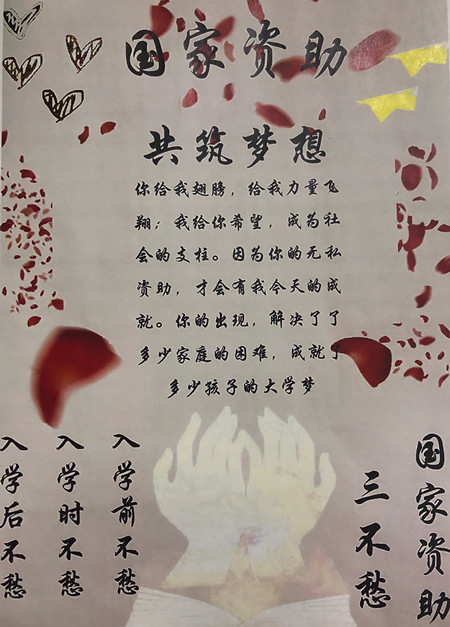 国家资助
共筑梦想
你给我翅膀，给我力量飞
翔；我给你希望，成为社
会的支柱。因为你的无私
资助，才会有我今天的成
就。你的出现，解决了了
多少家庭的困难，成就了
多少孩子的大学梦
国家资助
三不愁
入学前不愁
入学时不愁
入学后不愁